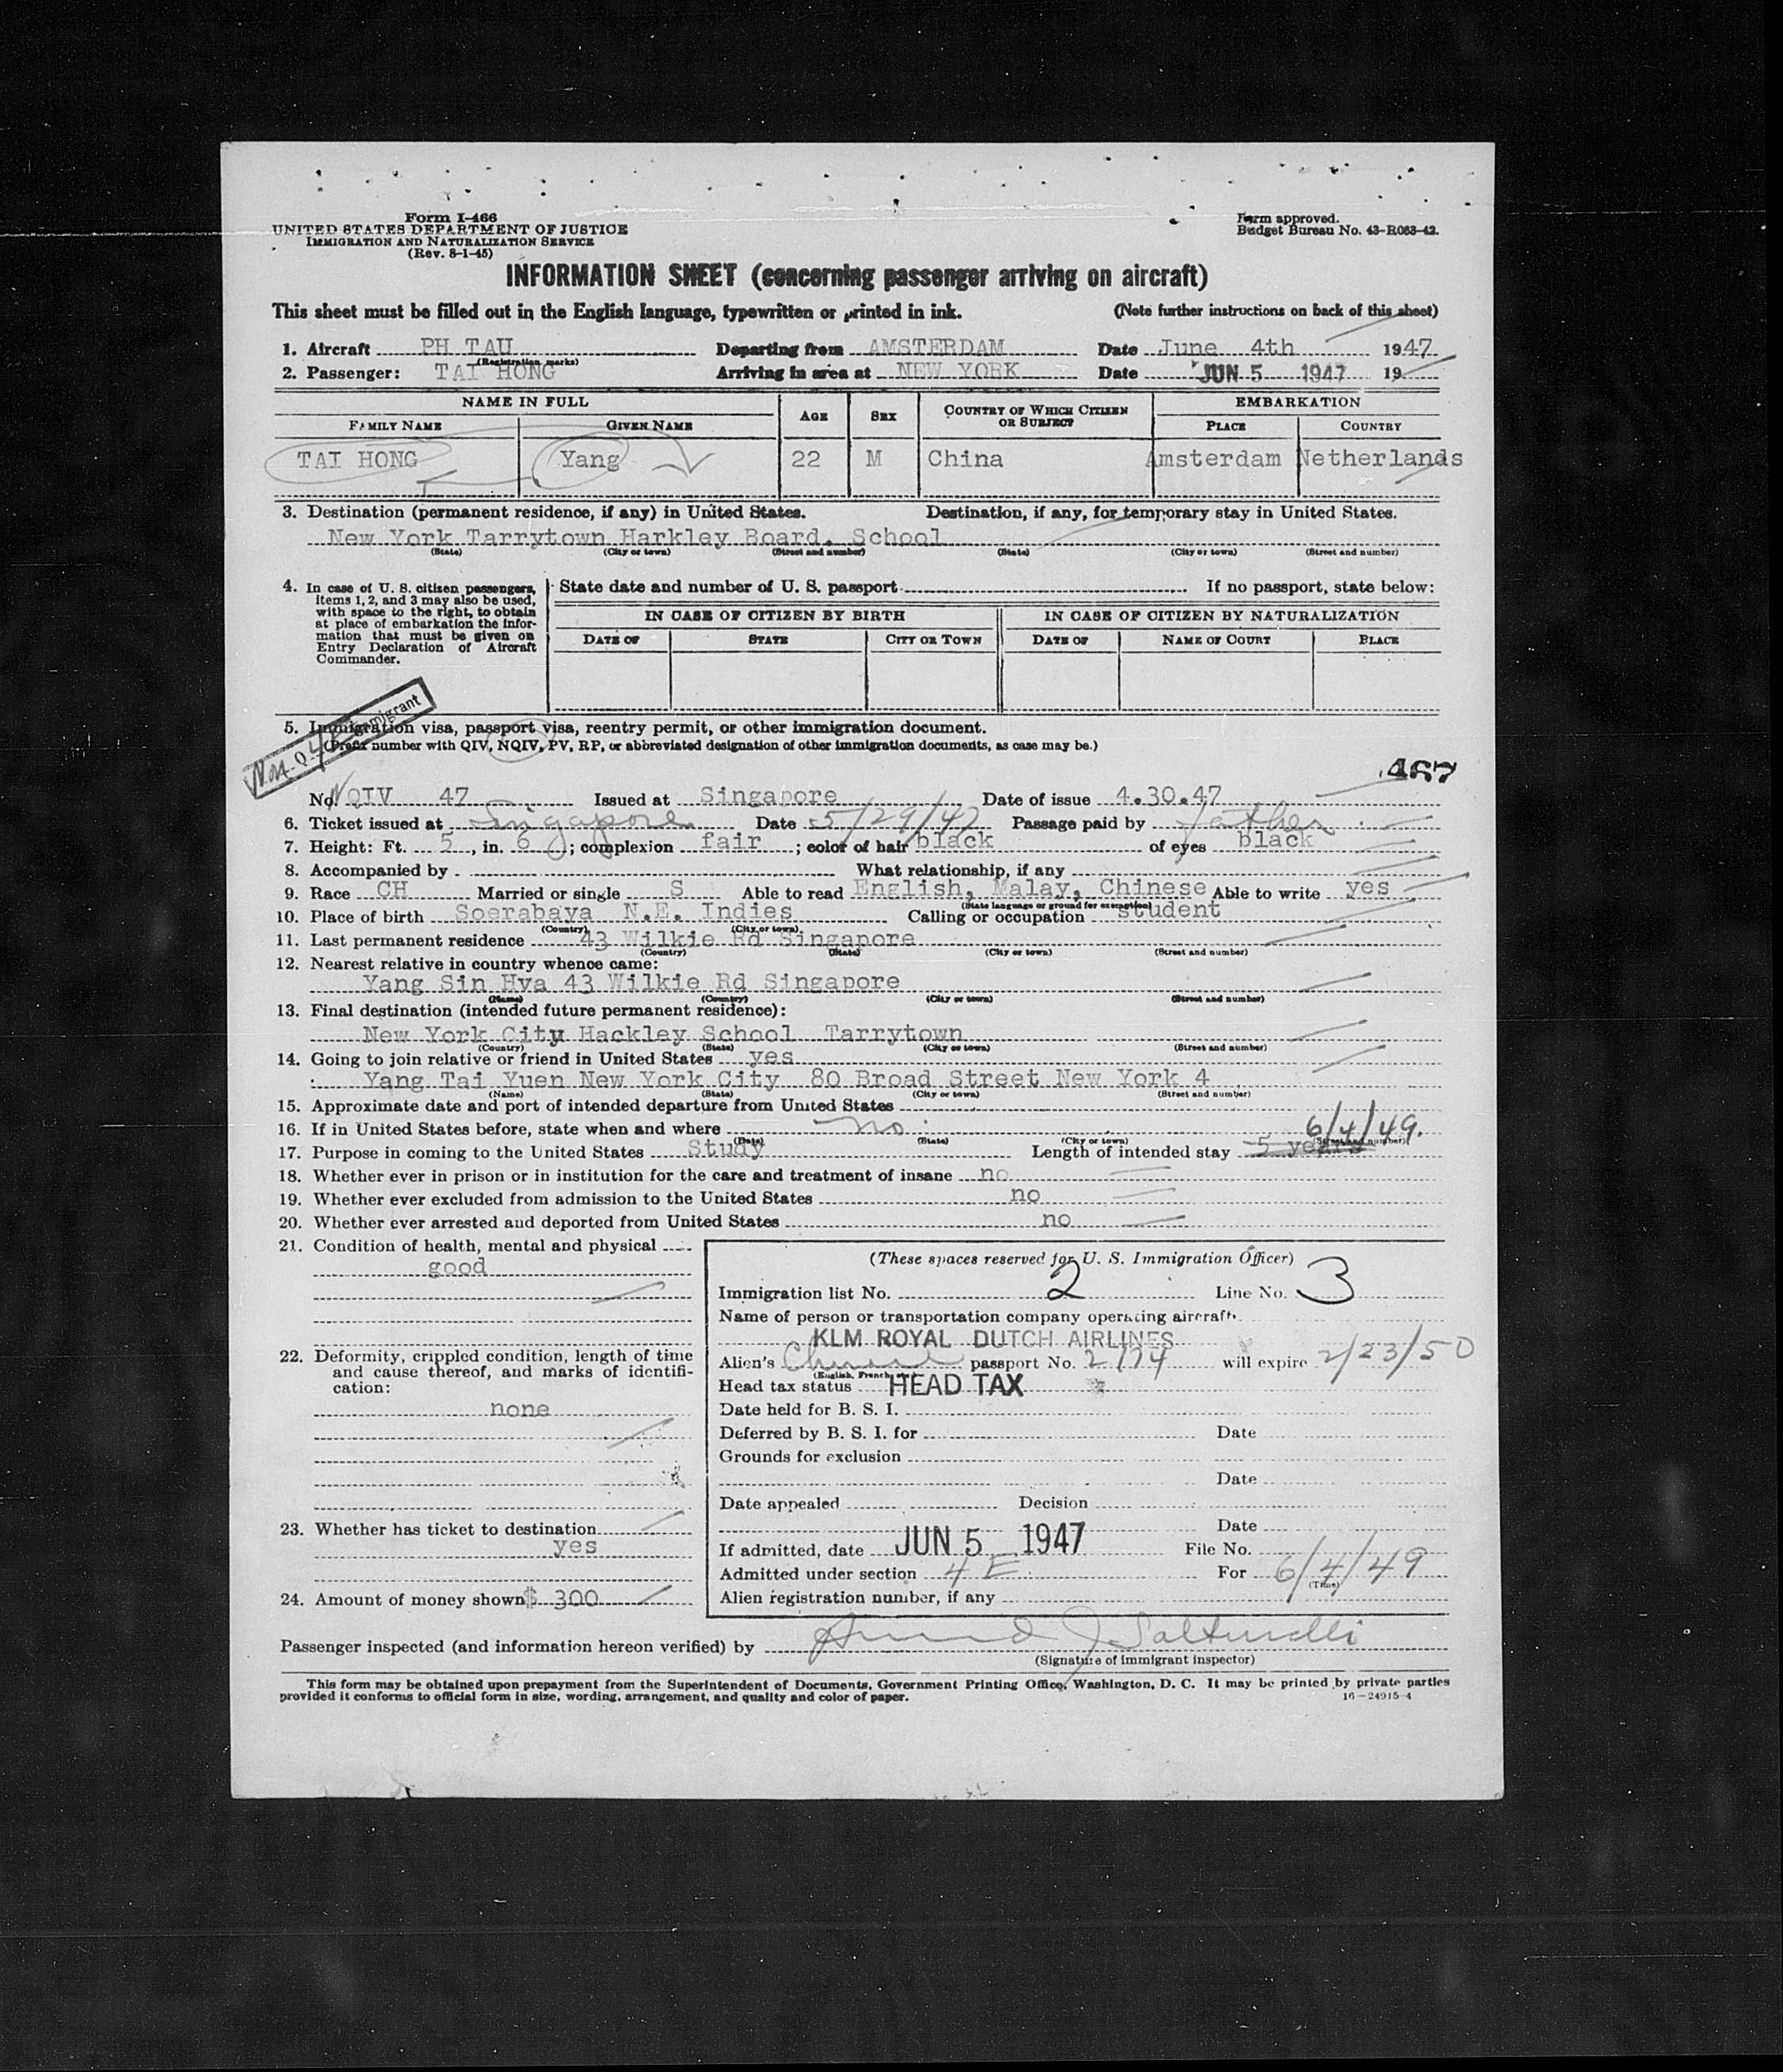 Form I-466
UNITED STATES DEPARTMENT OF JUSTICE
IMMIGRATION AND NATURALIZATION SERVICE
(Rev. 8-1-45)
Form approved.
Budget Bureau No. 43-R063-42.
INFORMATION SHEET (concerning passenger arriving on aircraft)
This sheet must be filled out in the English language, typewritten or printed in ink. (Note further instructions on back of this sheet)
1. Aircraft PH TAU Departing from AMSTERDAM Date June 4th 1947
(Registration marks)
2. Passenger: TAI HONG Arriving in area at NEW YORK Date JUN 5 1947 19
NAME IN FULL AGE SEX COUNTRY OF WHICH CITIZEN OR SUBJECT EMBARKATION
FAMILY NAME GIVEN NAME PLACE COUNTRY
TAI HONG Yang 22 M China Amsterdam Netherlands
3. Destination (permanent residence, if any) in United States. Destination, if any, for temporary stay in United States.
New York Tarrytown Harkley Board. School
(State) (City or town) (Street and number) (State) (City or town) (Street and number)
4. In case of U. S. citizen passengers, items 1, 2, and 3 may also be used, with space to the right, to obtain at place of embarkation the information that must be given on Entry Declaration of Aircraft Commander.
State date and number of U. S. passport If no passport, state below:
IN CASE OF CITIZEN BY BIRTH IN CASE OF CITIZEN BY NATURALIZATION
DATE OF STATE CITY OR TOWN DATE OF NAME OF COURT PLACE
5. Immigration visa, passport visa, reentry permit, or other immigration document.
(Prefix number with QIV, NQIV, PV, RP, or abbreviated designation of other immigration documents, as case may be.)
467
No. NQIV 47 Issued at Singapore Date of issue 4.30.47
6. Ticket issued at Singapore Date 5/29/47 Passage paid by father
7. Height: Ft. 5, in. 6; complexion fair; color of hair black of eyes black
8. Accompanied by What relationship, if any
9. Race CH Married or single S Able to read English, Malay, Chinese Able to write yes
(State language or ground for exemption)
10. Place of birth Soerabaya N.E. Indies Calling or occupation student
(Country) (City or town)
11. Last permanent residence 43 Wilkie Rd Singapore
(Country) (State) (City or town) (Street and number)
12. Nearest relative in country whence came:
Yang Sin Hva 43 Wilkie Rd Singapore
(Name) (Country) (City or town) (Street and number)
13. Final destination (intended future permanent residence):
New York City Hackley School Tarrytown
(Country) (State) (City or town) (Street and number)
14. Going to join relative or friend in United States yes
Yang Tai Yuen New York City 80 Broad Street New York 4
(Name) (State) (City or town) (Street and number)
15. Approximate date and port of intended departure from United States
16. If in United States before, state when and where no 6/4/49.
(Date) (State) (City or town) (Street and number)
17. Purpose in coming to the United States Study Length of intended stay 5 years
18. Whether ever in prison or in institution for the care and treatment of insane no
19. Whether ever excluded from admission to the United States no
20. Whether ever arrested and deported from United States no
21. Condition of health, mental and physical
good
22. Deformity, crippled condition, length of time and cause thereof, and marks of identification:
none
23. Whether has ticket to destination
yes
24. Amount of money shown $ 300
(These spaces reserved for U. S. Immigration Officer)
Immigration list No. 2 Line No. 3
Name of person or transportation company operating aircraft
KLM ROYAL DUTCH AIRLINES
Alien's Chinese passport No. 2174 will expire 2/23/50
(English, French, etc.)
Head tax status HEAD TAX
Date held for B. S. I.
Deferred by B. S. I. for Date
Grounds for exclusion
Date
Date appealed Decision
Date
If admitted, date JUN 5 1947 File No.
Admitted under section 4 E For 6/4/49
(Time)
Alien registration number, if any
Passenger inspected (and information hereon verified) by
(Signature of immigrant inspector)
This form may be obtained upon prepayment from the Superintendent of Documents, Government Printing Office, Washington, D. C. It may be printed by private parties
provided it conforms to official form in size, wording, arrangement, and quality and color of paper. 16-24915-4